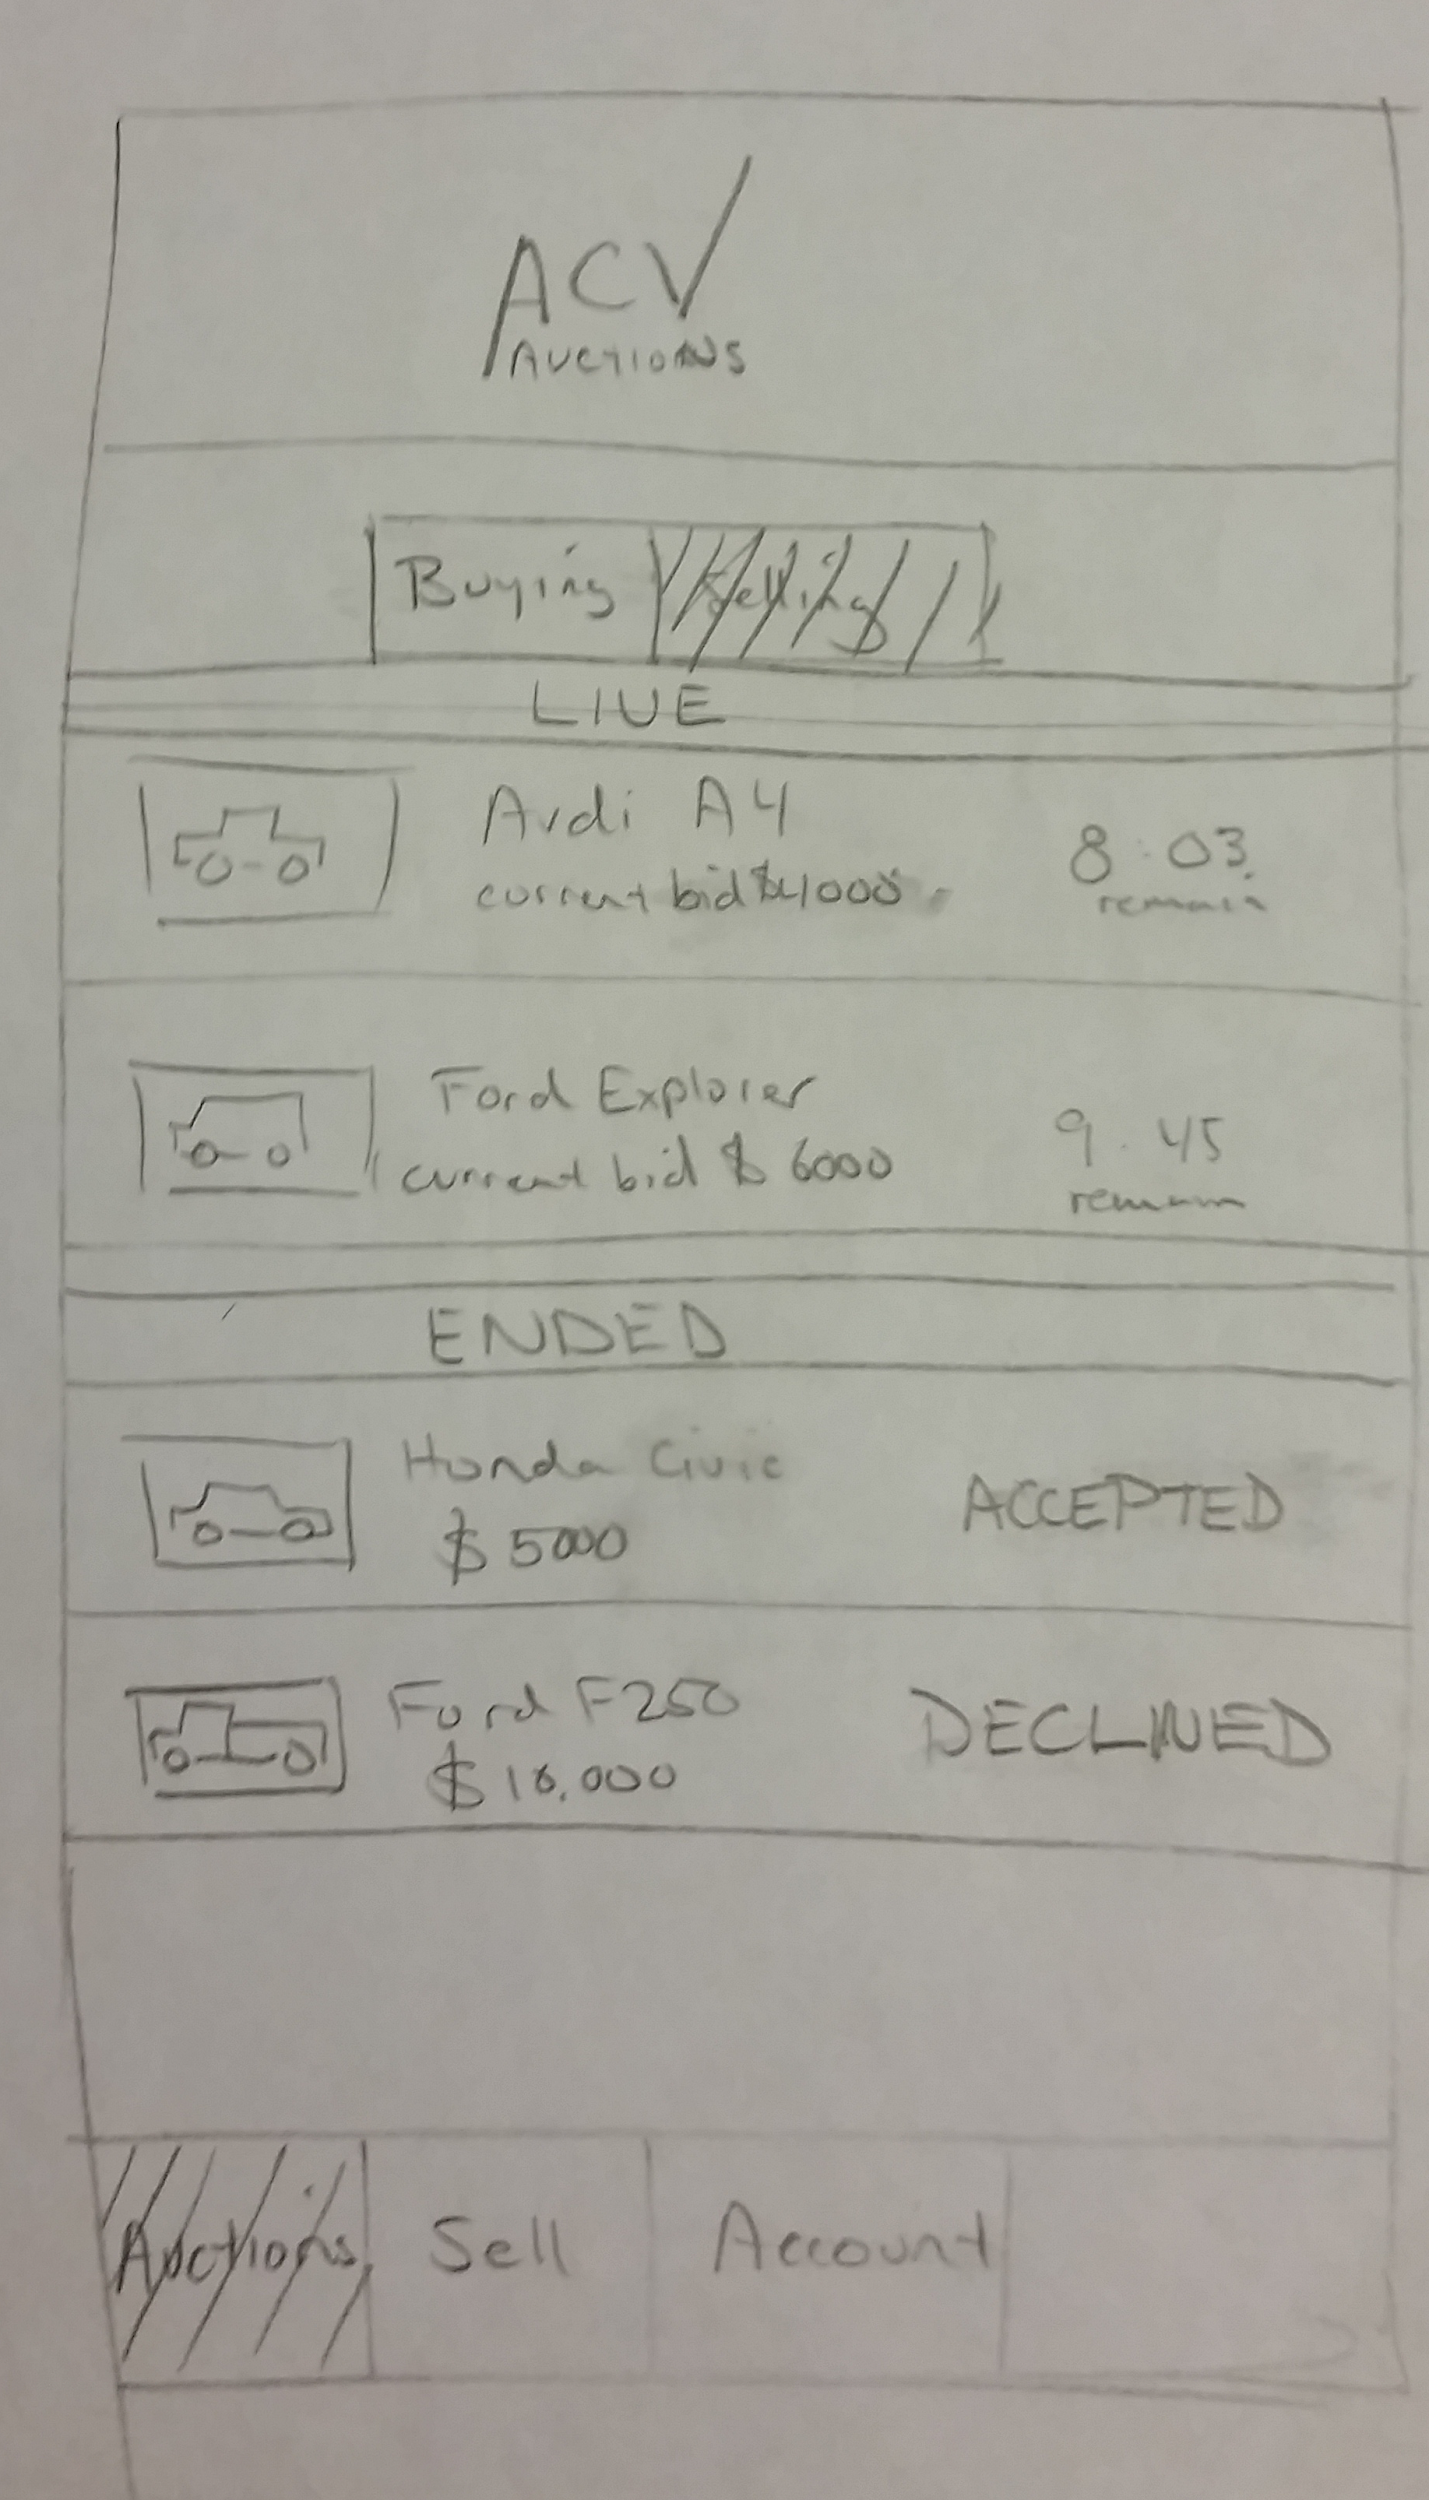 ACV
AUCTIONS
Buying Selling
LIVE
Audi A4
current bid $4000
8:03
remain
Ford Explorer
current bid $ 6000
9:45
remain
ENDED
Honda Civic
$ 5000
ACCEPTED
Ford F250
$ 10,000
DECLINED
Auctions Sell Account